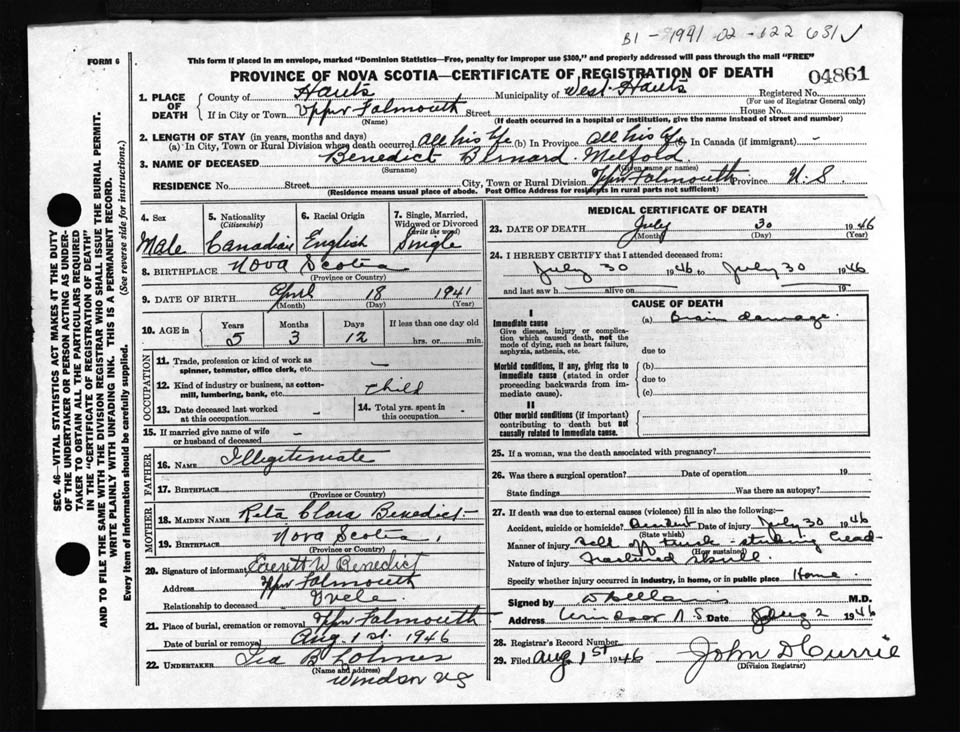 B1 - 1941 02-122 631 ✓
FORM 6
This form if placed in an envelope, marked "Dominion Statistics—Free, penalty for improper use $300," and properly addressed will pass through the mail "FREE"
PROVINCE OF NOVA SCOTIA—CERTIFICATE OF REGISTRATION OF DEATH 04861
1. PLACE OF DEATH County of Hants Municipality of West Hants Registered No.
(For use of Registrar General only)
If in City or Town Upper Falmouth Street House No.
(Name) (If death occurred in a hospital or institution, give the name instead of street and number)
2. LENGTH OF STAY (in years, months and days)
(a) In City, Town or Rural Division where death occurred all his life (b) In Province all his life (c) In Canada (if immigrant) -
3. NAME OF DECEASED Benedict Bernard
(Surname) (Given name or names)
RESIDENCE No. Street City, Town or Rural Division Uppr Falmouth Province N.S.
(Residence means usual place of abode. Post Office Address for residents in rural parts not sufficient)
SEC. 46—VITAL STATISTICS ACT MAKES IT THE DUTY
OF THE UNDERTAKER OR PERSON ACTING AS UNDER-
TAKER TO OBTAIN ALL THE PARTICULARS REQUIRED
IN THE "CERTIFICATE OF REGISTRATION OF DEATH"
AND TO FILE THE SAME WITH THE DIVISION REGISTRAR WHO SHALL ISSUE THE BURIAL PERMIT.
WRITE PLAINLY WITH UNFADING INK. THIS IS A PERMANENT RECORD.
Every item of information should be carefully supplied. (See reverse side for instructions.)
4. Sex 5. Nationality (Citizenship) 6. Racial Origin 7. Single, Married, Widowed or Divorced (Write the word)
Male Canadian English Single
8. BIRTHPLACE Nova Scotia
(Province or Country)
9. DATE OF BIRTH April 18 1941
(Month) (Day) (Year)
10. AGE in Years Months Days If less than one day old
5 3 12 hrs. or min.
OCCUPATION
11. Trade, profession or kind of work as spinner, teamster, office clerk, etc. -
12. Kind of industry or business, as cotton-mill, lumbering, bank, etc. child
13. Date deceased last worked at this occupation - 14. Total yrs. spent in this occupation -
15. If married give name of wife or husband of deceased -
FATHER
16. NAME Illegitimate
17. BIRTHPLACE
(Province or Country)
MOTHER
18. MAIDEN NAME Rita Clara Benedict
19. BIRTHPLACE Nova Scotia
(Province or Country)
20. Signature of informant Everett W Benedict
Address Uppr Falmouth
Relationship to deceased
21. Place of burial, cremation or removal Uppr Falmouth
Date of burial or removal Aug. 1st. 1946
22. UNDERTAKER Ira B
(Name and address)
Windsor NS
MEDICAL CERTIFICATE OF DEATH
23. DATE OF DEATH July 30 1946
(Month) (Day) (Year)
24. I HEREBY CERTIFY that I attended deceased from:
July 30 1946 to July 30 1946
and last saw h alive on 19
CAUSE OF DEATH
I
Immediate cause (a) Brain damage.
Give disease, injury or complication which caused death, not the mode of dying, such as heart failure, asphyxia, asthenia, etc.
due to
Morbid conditions, if any, giving rise to immediate cause (stated in order proceeding backwards from immediate cause).
(b)
due to
(c)
II
Other morbid conditions (if important) contributing to death but not causally related to immediate cause.
25. If a woman, was the death associated with pregnancy?
26. Was there a surgical operation? Date of operation 19
State findings Was there an autopsy?
27. If death was due to external causes (violence) fill in also the following:—
Accident, suicide or homicide? Accident Date of injury July 30 1946
(State which)
Manner of injury Fell off truck - striking head
(How sustained)
Nature of injury Fractured skull
Specify whether injury occurred in industry, in home, or in public place Home
Signed by M.D.
Address Windsor N.S. Date Aug 2 1946
28. Registrar's Record Number
29. Filed Aug 1st 1946 John D Currie
(Division Registrar)